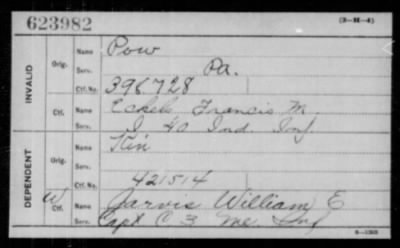 623982 (3-M-4)
INVALID
Orig.
Name Pow
Serv. Pa.
Ctf. No. 396.728
Ctf.
Name Eckels Francis M.
Serv. I 40 Ind. Inf.
DEPENDENT
Orig.
Name Kin
Serv.
Ctf. No. 421514
W Ctf.
Name Jarvis William E
Serv. Capt C 3 Me. Inf